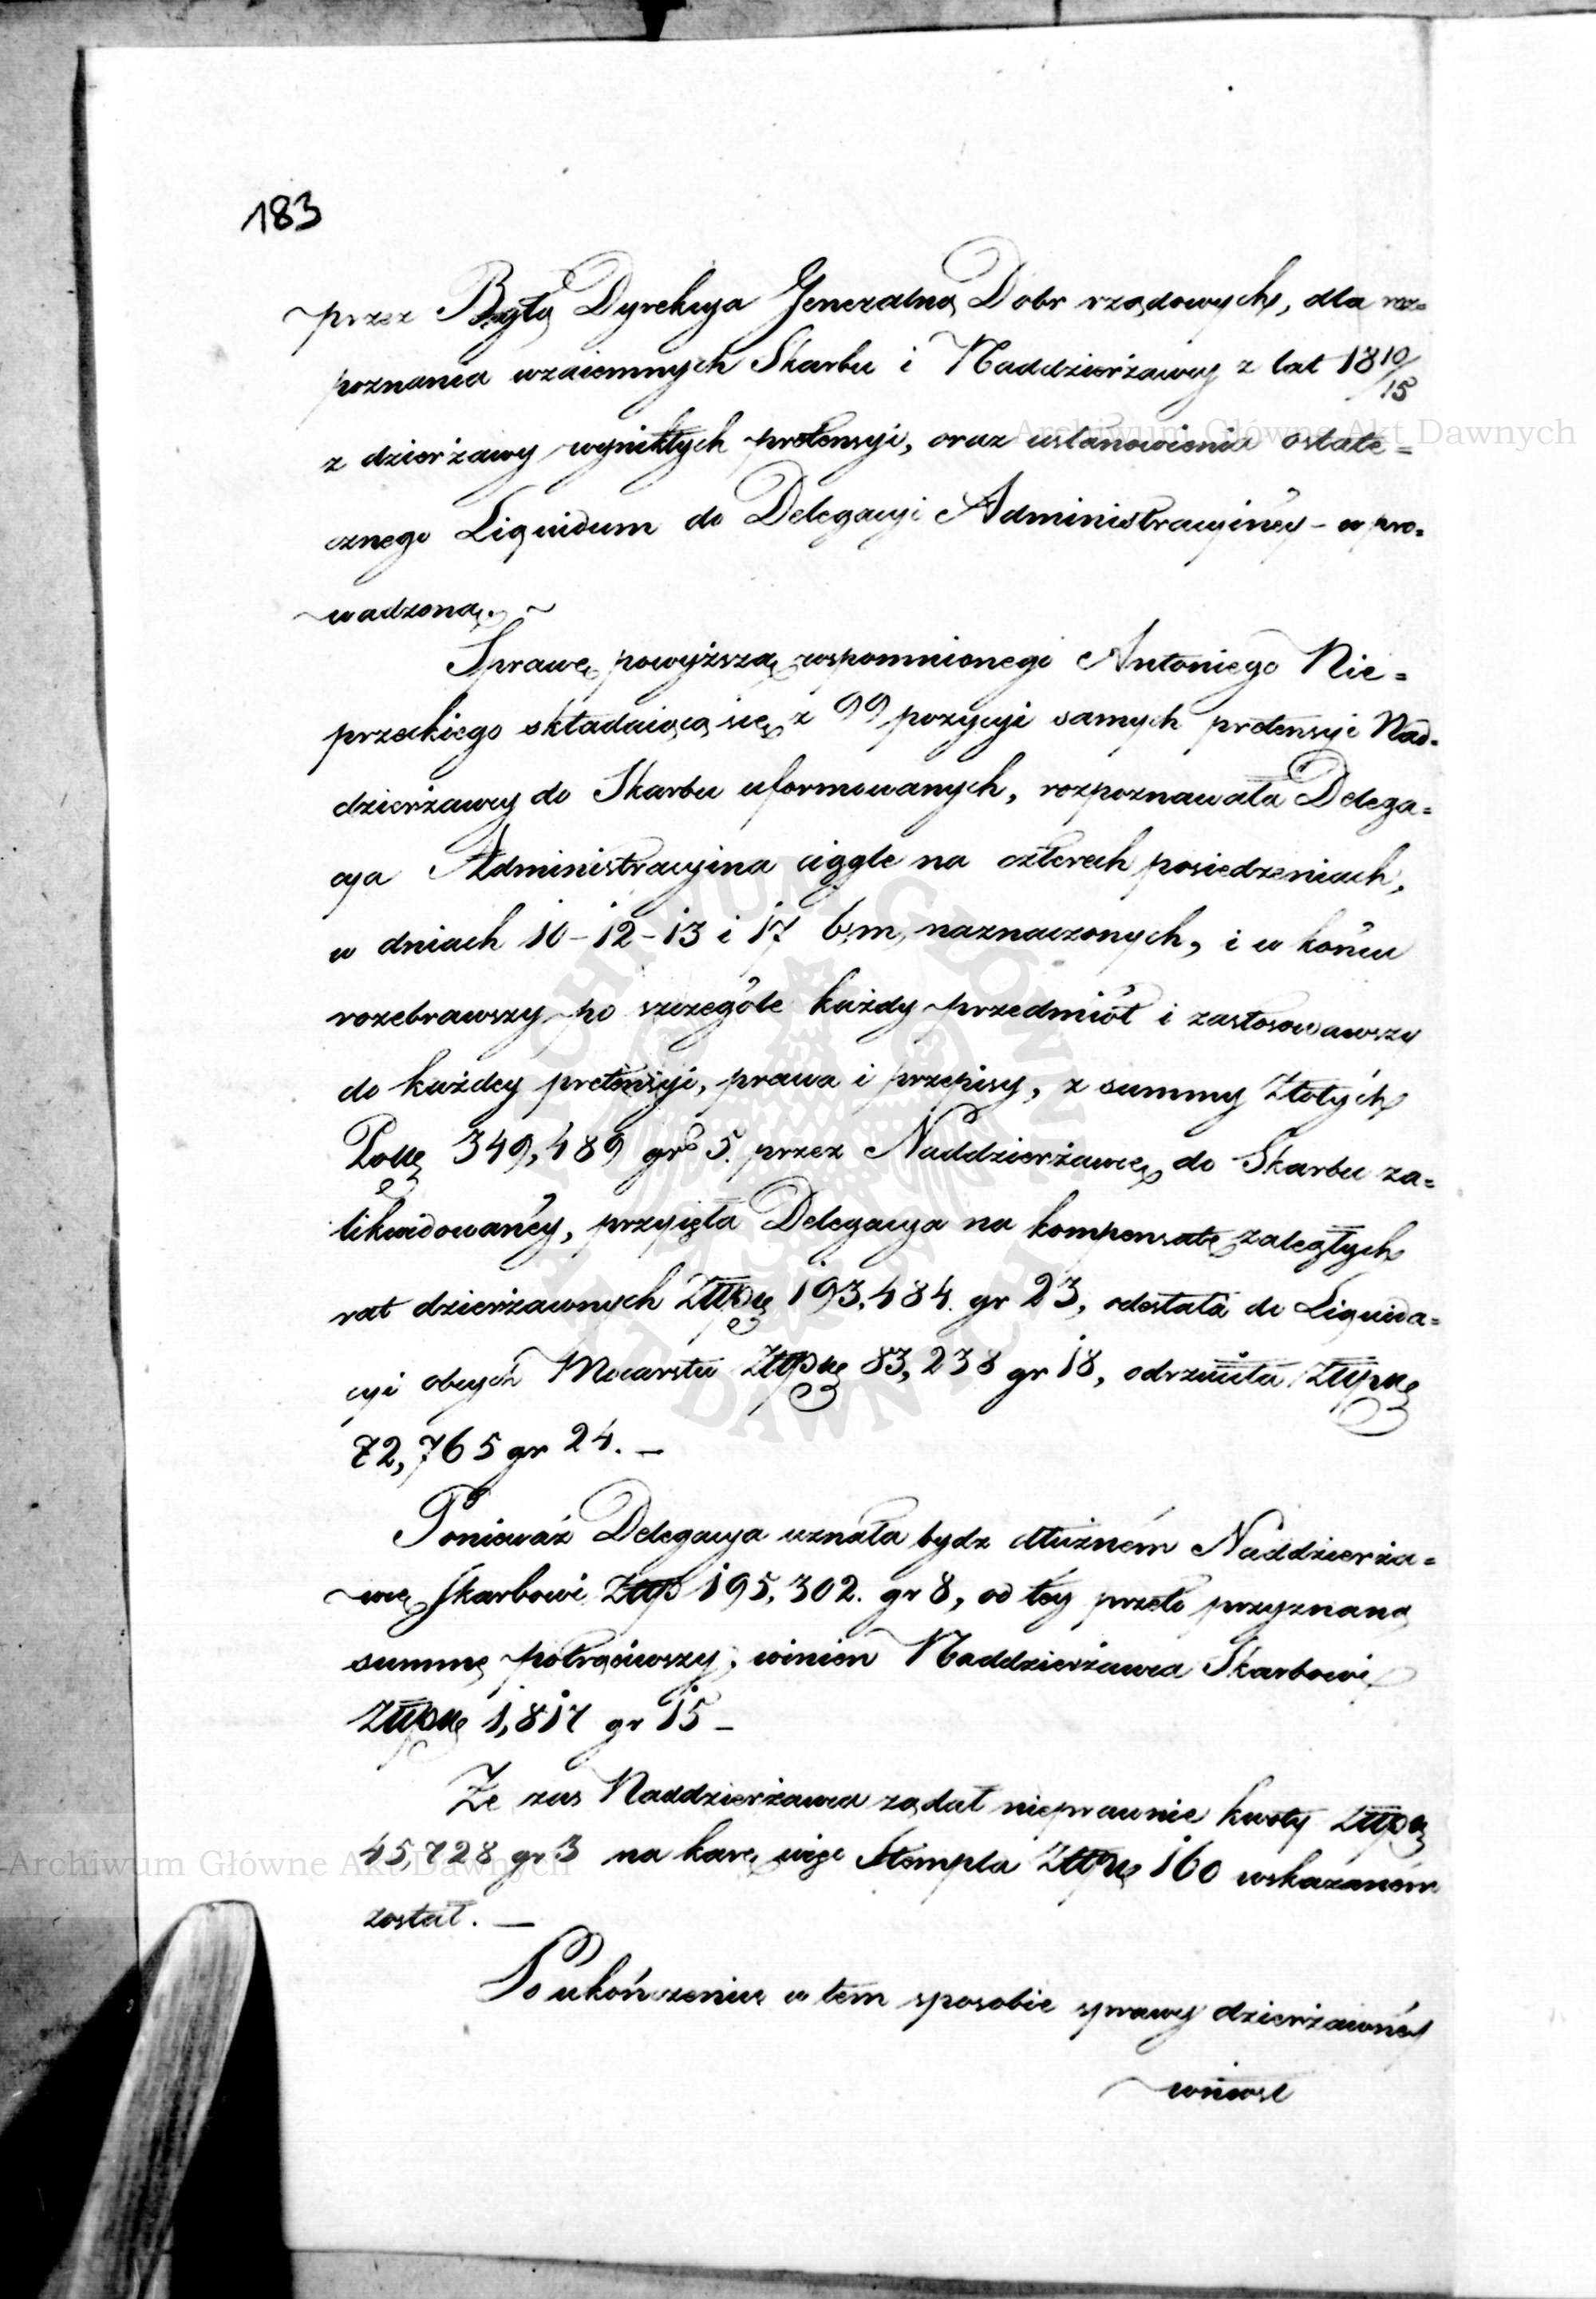 183
przez Byłą Dyrekcyą Generalną Dobr rządowych, dla roz=
poznania wzaiemnych Skarbu i Naddzierżawcy z lat 18 10/15
z dzierżawy wynikłych pretensyi, oraz ustanowienia ostate=
cznego Liquidum do Delegacyi Administracyinéy – wpro=
wadzoną. ~
Sprawę powyższą wspomnionego Antoniego Nie=
przeckiego składaiącą się z 99 pozycyi samych pretensyi Nad=
dzierżawcy do Skarbu uformowanych, rozpoznawała Delega=
cya Administracyina ciągle na czterech posiedzeniach,
w dniach 10 – 12 – 13 i 17 b.m. naznaczonych, i w końcu
rozebrawszy po szczególe każdy przedmiot i zastosowawszy
do każdey pretensyi, prawa i przepisy, z summy Złotych
Polsk 349,489 gr 5. przez Naddzierżawcę do Skarbu za=
likwidowanéy, przyięła Delegacya na kompensatę zaległych
rat dzierżawnych Złtpsk 193,484. gr 23, odesłała do Liquida=
cyi obcych Mocarstw Złtpsk 83,238 gr 18, odrzuciła Złtpsk
72,765 gr 24. –
Ponieważ Delegacya uznała bydz dłużném Naddzierża=
wcę Skarbowi Złtp 195,302. gr 8, od téy przeto przyznaną
summę potrąciwszy, winien Naddzierżawca Skarbowi
Złtpsk 1,817 gr 15 –
Ze zas Naddzierżawca żądał nieprawnie kwoty Złtpsk
45,728 gr 3 na karę więc Stempla Złtpsk 160 wskazaném
został. –
Po ukończeniu w tem sposobie sprawy dzierżawnéy
wniosł
Archiwum Główne Akt Dawnych
Archiwum Główne Akt Dawnych
ARCHIWUM GŁÓWNE AKT DAWNYCH